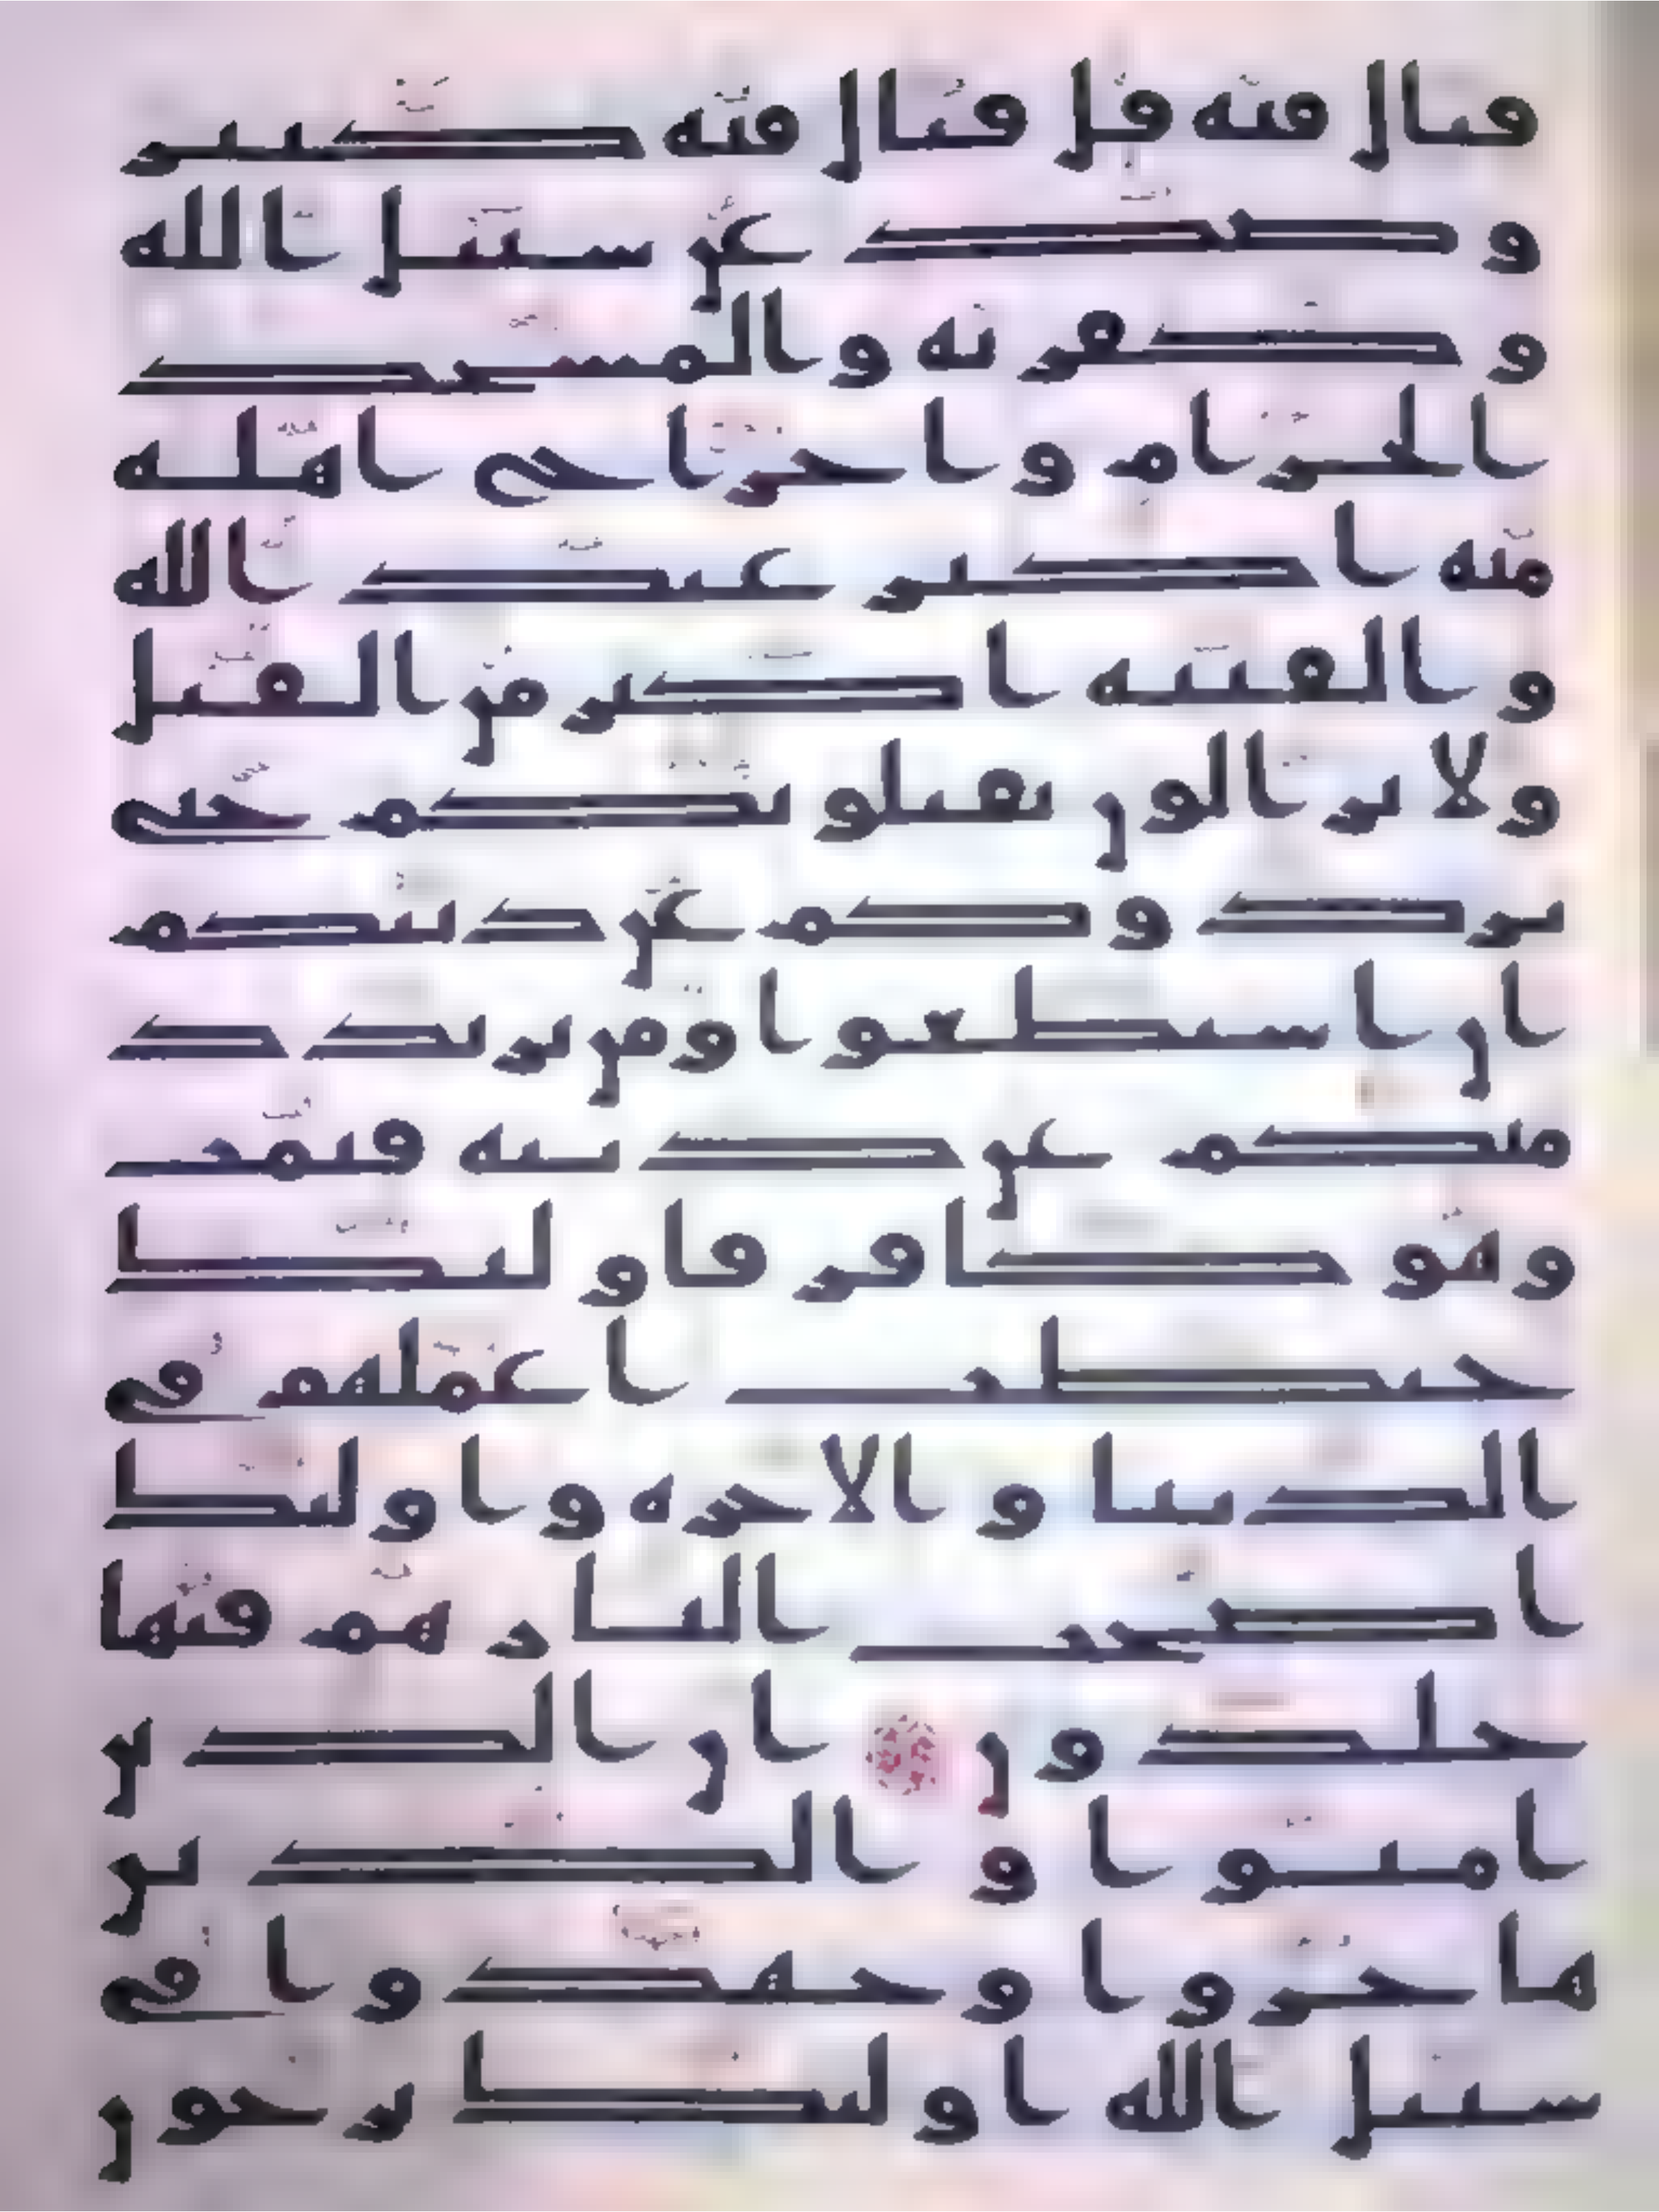 قتال فيه قل قتال فيه كبير
وصد عن سبيل الله
وكفر به والمسجد
الحرام واخراج اهله
منه اكبر عند الله
والفتنه اكبر من القتل
ولا يزالون يقتلونكم حتى
يردوكم عن دينكم
ان استطعوا ومن يرتدد
منكم عن دينه فيمت
وهو كافر فاولئك
حبطت اعملهم في
الدنيا والاخره واولئك
اصحب النار هم فيها
خلدون ان الذين
امنوا والذين
هاجروا وجهدوا في
سبيل الله اولئك يرجون